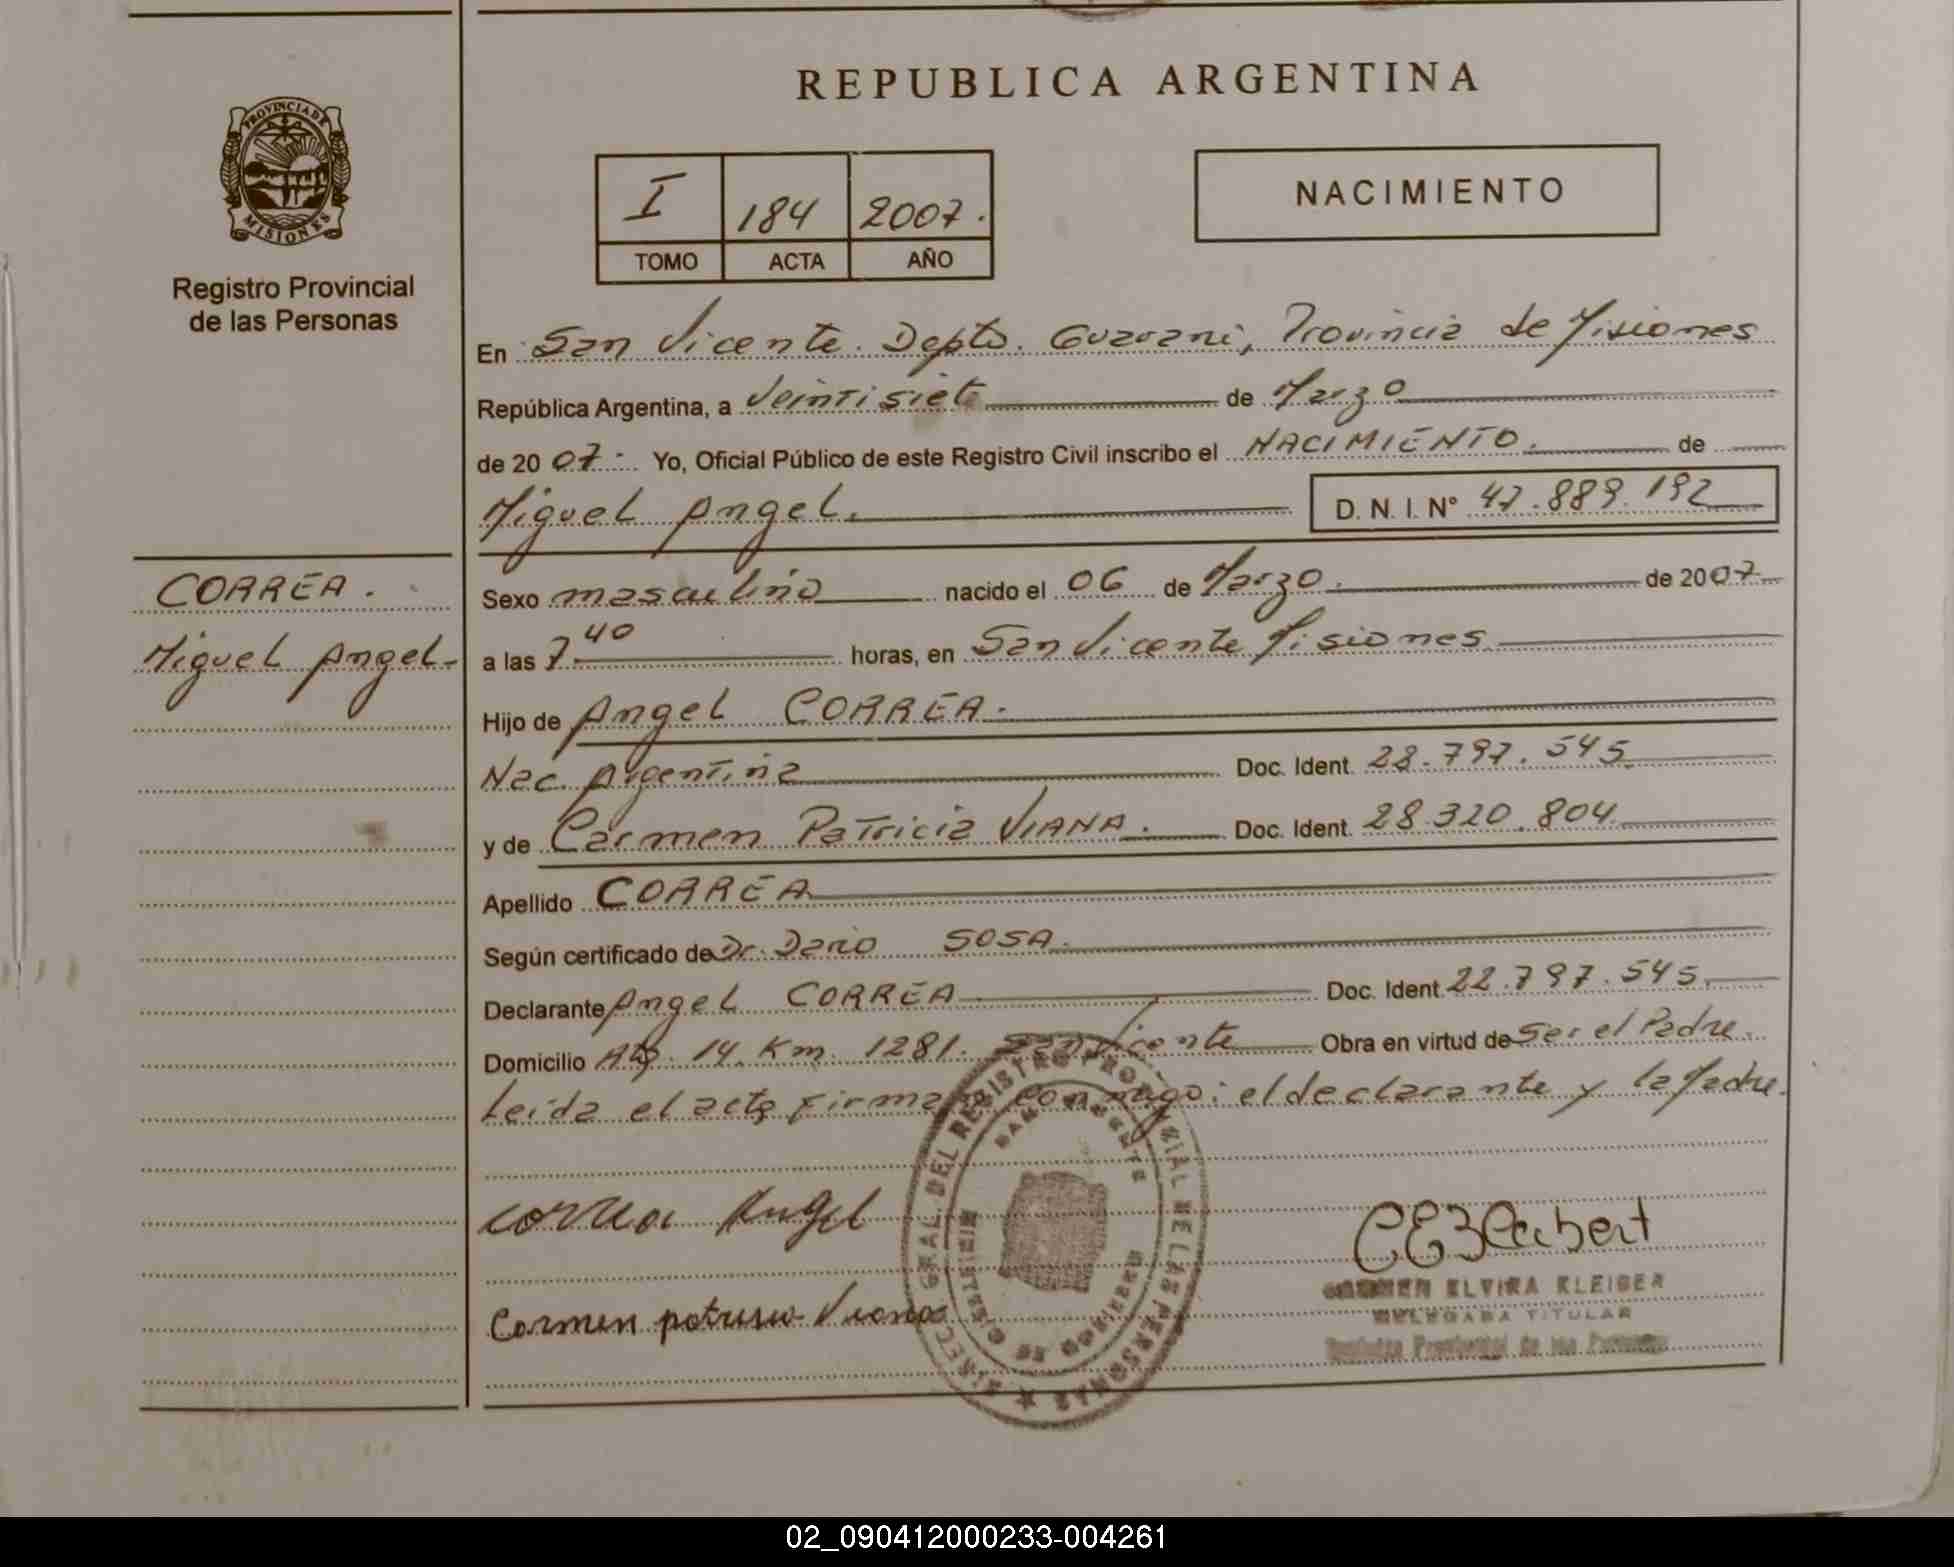 REPUBLICA ARGENTINA
PROVINCIA DE
MISIONES
Registro Provincial
de las Personas
I 184 2007.
TOMO ACTA AÑO
NACIMIENTO
En San Vicente. Depto. Guarani, Provincia de Misiones
República Argentina, a Veintisiete de Marzo
de 2007.- Yo, Oficial Público de este Registro Civil inscribo el NACIMIENTO. de
Miguel Angel. D. N. I. Nº 47.889.192
CORREA.
Miguel Angel.-
Sexo masculino nacido el 06 de Marzo. de 2007
a las 7.40 horas, en San Vicente Misiones
Hijo de Angel CORREA.
Nac. Argentina Doc. Ident. 28.797.545
y de Carmen Patricia VIANA. Doc. Ident. 28.320.804
Apellido CORREA
Según certificado de Dr. Dario SOSA.
Declarante Angel CORREA Doc. Ident. 22.797.545.
Domicilio 14. Km. 1281. San Vicente Obra en virtud de Ser el Padre.
Leida el acta firma conmigo: el declarante y la Madre.
correa Angel
Carmen patrisia Viana
DIREC. GRAL. DEL REGISTRO PROVINCIAL DE LAS PERSONAS
SAN VICENTE
MINISTERIO DE GOBIERNO
CARMEN ELVIRA KLEIBER
DELEGADA TITULAR
Registro Provincial de las Personas
02_090412000233-004261